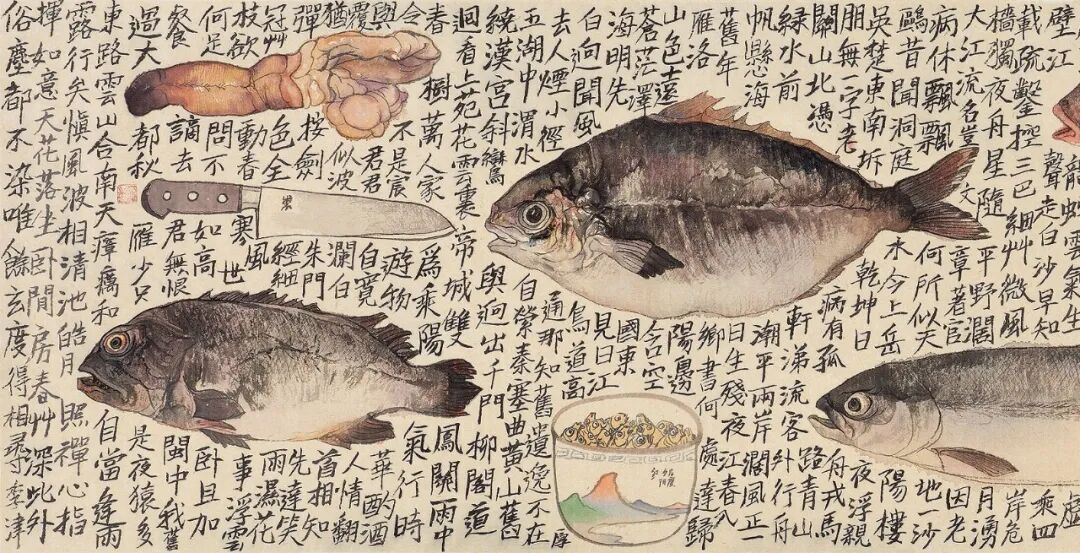 龍蛇雲氣生虛
壁江聲走白沙早知乘四
載疏鑿控三巴細艸微風岸危
檣獨夜舟星隨平野闊月湧
大江流名豈文章著官因老
病休飄飄何所似天地一沙
鷗昔聞洞庭水今上岳陽樓
吳楚東南坼乾坤日夜浮親
朋無一字老病有孤舟戎馬
關山北憑軒涕流客路青山外行舟
綠水前潮平兩岸闊風正一
帆懸海日生殘夜江春入
舊年鄉書何處達歸
雁洛陽邊
山色遠含空
蒼茫澤國東
海明先見日江
白迥聞風鳥道高
去人煙小徑通那知舊遺逸不在
五湖中渭水自縈秦塞曲黃山舊
繞漢宮斜鑾輿迥出千門柳閣道
迴看上苑花雲裏帝城雙鳳闕雨中
春樹萬人家爲乘陽氣行時
令不是宸遊物華酌酒
與君君自寬人情翻
覆似波瀾白首相知
猶按劍朱門先達笑
彈冠艸色全經細雨濕花
枝欲動春寒風世事浮雲
何足問不如高臥且加
餐謫去君無恨閩中我舊
過大都秋雁少只是夜猿多
東路雲山合南天瘴癘和自當逢雨
露行矣慎風波相清池皓月照禪心指
揮如意天花落坐臥閒房春艸深此外
俗塵都不染唯餘玄度得相尋李津